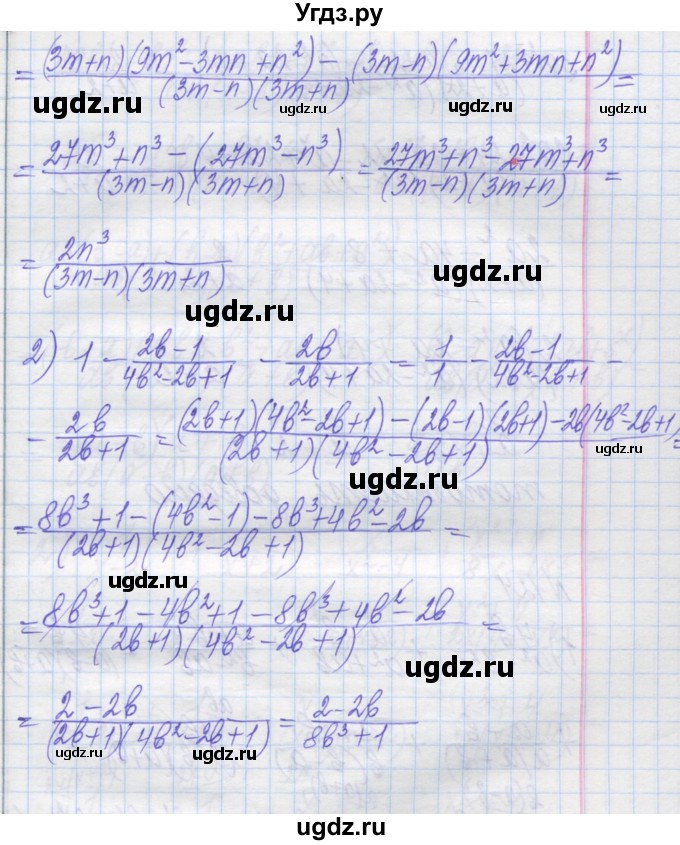 Угдз.ру
= ((3m+n)(9m²-3mn+n²) - (3m-n)(9m²+3mn+n²))/((3m-n)(3m+n)) =
ugdz.ru ugdz.ru ugdz.ru ugdz.ru
= (27m³+n³-(27m³-n³))/((3m-n)(3m+n)) = (27m³+n³-27m³+n³)/((3m-n)(3m+n)) =
ugdz.ru ugdz.ru
= 2n³/((3m-n)(3m+n))
ugdz.ru
ugdz.ru
2) 1 - (2b-1)/(4b²-2b+1) - 2b/(2b+1) = 1/1 - (2b-1)/(4b²-2b+1) -
ugdz.ru ugdz.ru
- 2b/(2b+1) = ((2b+1)(4b²-2b+1)-(2b-1)(2b+1)-2b(4b²-2b+1))/((2b+1)(4b²-2b+1)) =
ugdz.ru
ugdz.ru
= (8b³+1-(4b²-1)-8b³+4b²-2b)/((2b+1)(4b²-2b+1)) =
ugdz.ru
= (8b³+1-4b²+1-8b³+4b²-2b)/((2b+1)(4b²-2b+1)) =
ugdz.ru
= (2-2b)/((2b+1)(4b²-2b+1)) = (2-2b)/(8b³+1)
ugdz.ru ugdz.ru
ugdz.ru